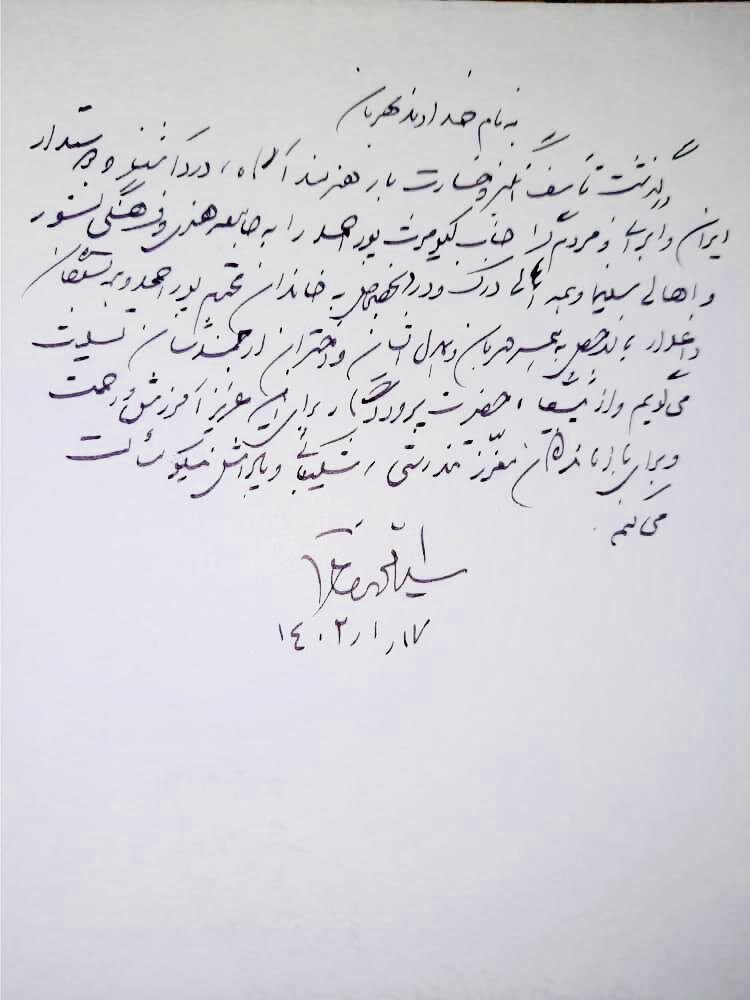 به نام خداوند مهربان
درگذشت تأسف انگیز و خسارت بار هنرمند آگاه، درد آشنا و دوستدار
ایران و ایرانی و مردم گرا جناب کیومرث پوراحمد را به جامعه هنری و فرهنگی کشور
و اهالی سینما و همه اهالی درک و درد بخصوص به خاندان محترم پوراحمد و بستگان
داغدار، بالاخص به همسر مهربان و دختران ارجمندشان تسلیت
می‌گویم و از پیشگاه حضرت پروردگار برای این عزیز آمرزش و رحمت
و برای بازماندگان معزز تندرستی، شکیبائی و پاداش نیکو مسألت
می‌کنم.
سید محمد خاتمی
۱۷ر۱ر۱۴۰۲